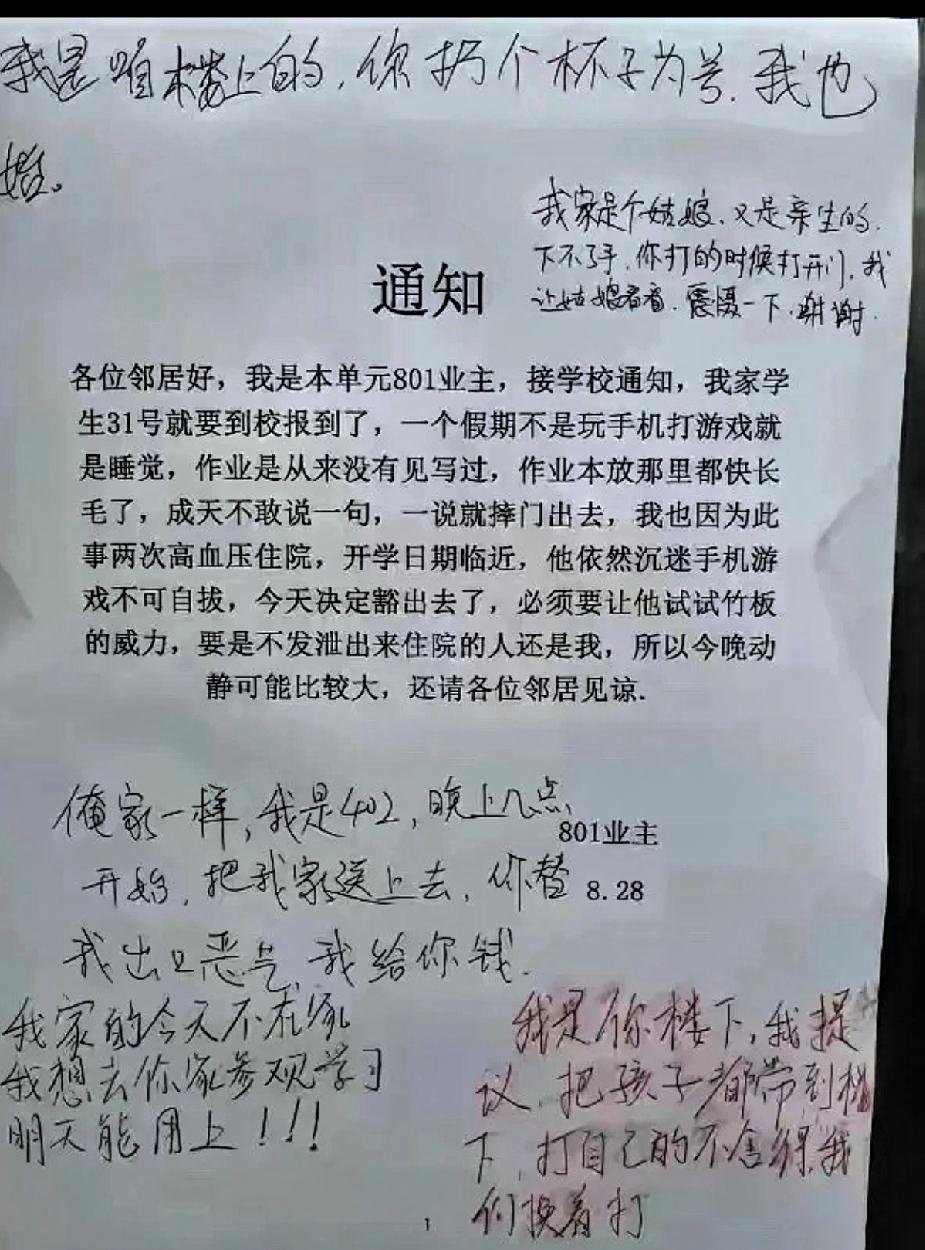 我是咱楼上的，你扔个杯子为号，我也
揍。
我家是个姑娘、又是亲生的，
下不了手，你打的时候打开门，我
让姑娘看看，震慑一下，谢谢。
通知
各位邻居好，我是本单元801业主，接学校通知，我家学
生31号就要到校报到了，一个假期不是玩手机打游戏就
是睡觉，作业是从来没有见写过，作业本放那里都快长
毛了，成天不敢说一句，一说就摔门出去，我也因为此
事两次高血压住院，开学日期临近，他依然沉迷手机游
戏不可自拔，今天决定豁出去了，必须要让他试试竹板
的威力，要是不发泄出来住院的人还是我，所以今晚动
静可能比较大，还请各位邻居见谅.
801业主
8.28
俺家一样，我是402，晚上几点
开始，把我家送上去，你替
我出口恶气，我给你钱.
我家的今天不在家
我想去你家参观学习
明天能用上！！！
我是你楼下，我提
议、把孩子都带到楼
下，打自己的不舍得，我
们换着打
1